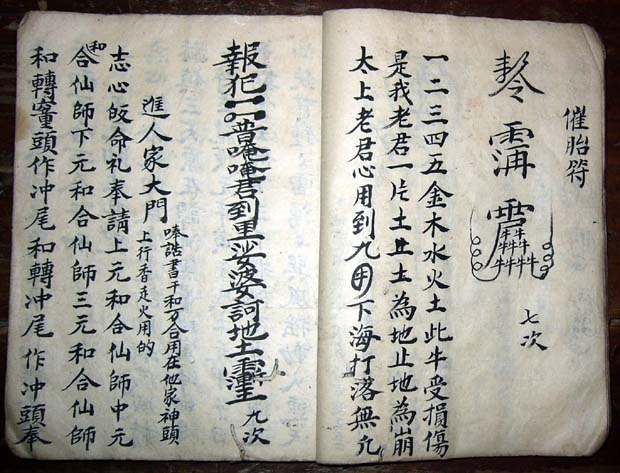 催胎符
七次
一二三四五金木水火土此牛受損傷
是我老君一片土土為地止地為崩
太上老君心用到九用下海打落無
報犯普唵唵君到里娑婆訶地土
九次
進人家大門
書千和万合用在他家神頭
上行香走火用的
志心皈命礼奉請上元和合仙師中元
和合仙師下元和合仙師三元和合仙師
和轉頭作冲尾和轉冲尾作冲頭奉